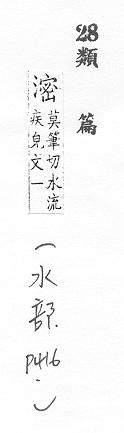 28類篇
滵莫筆切水流
疾皃文一
(水部 P416.)